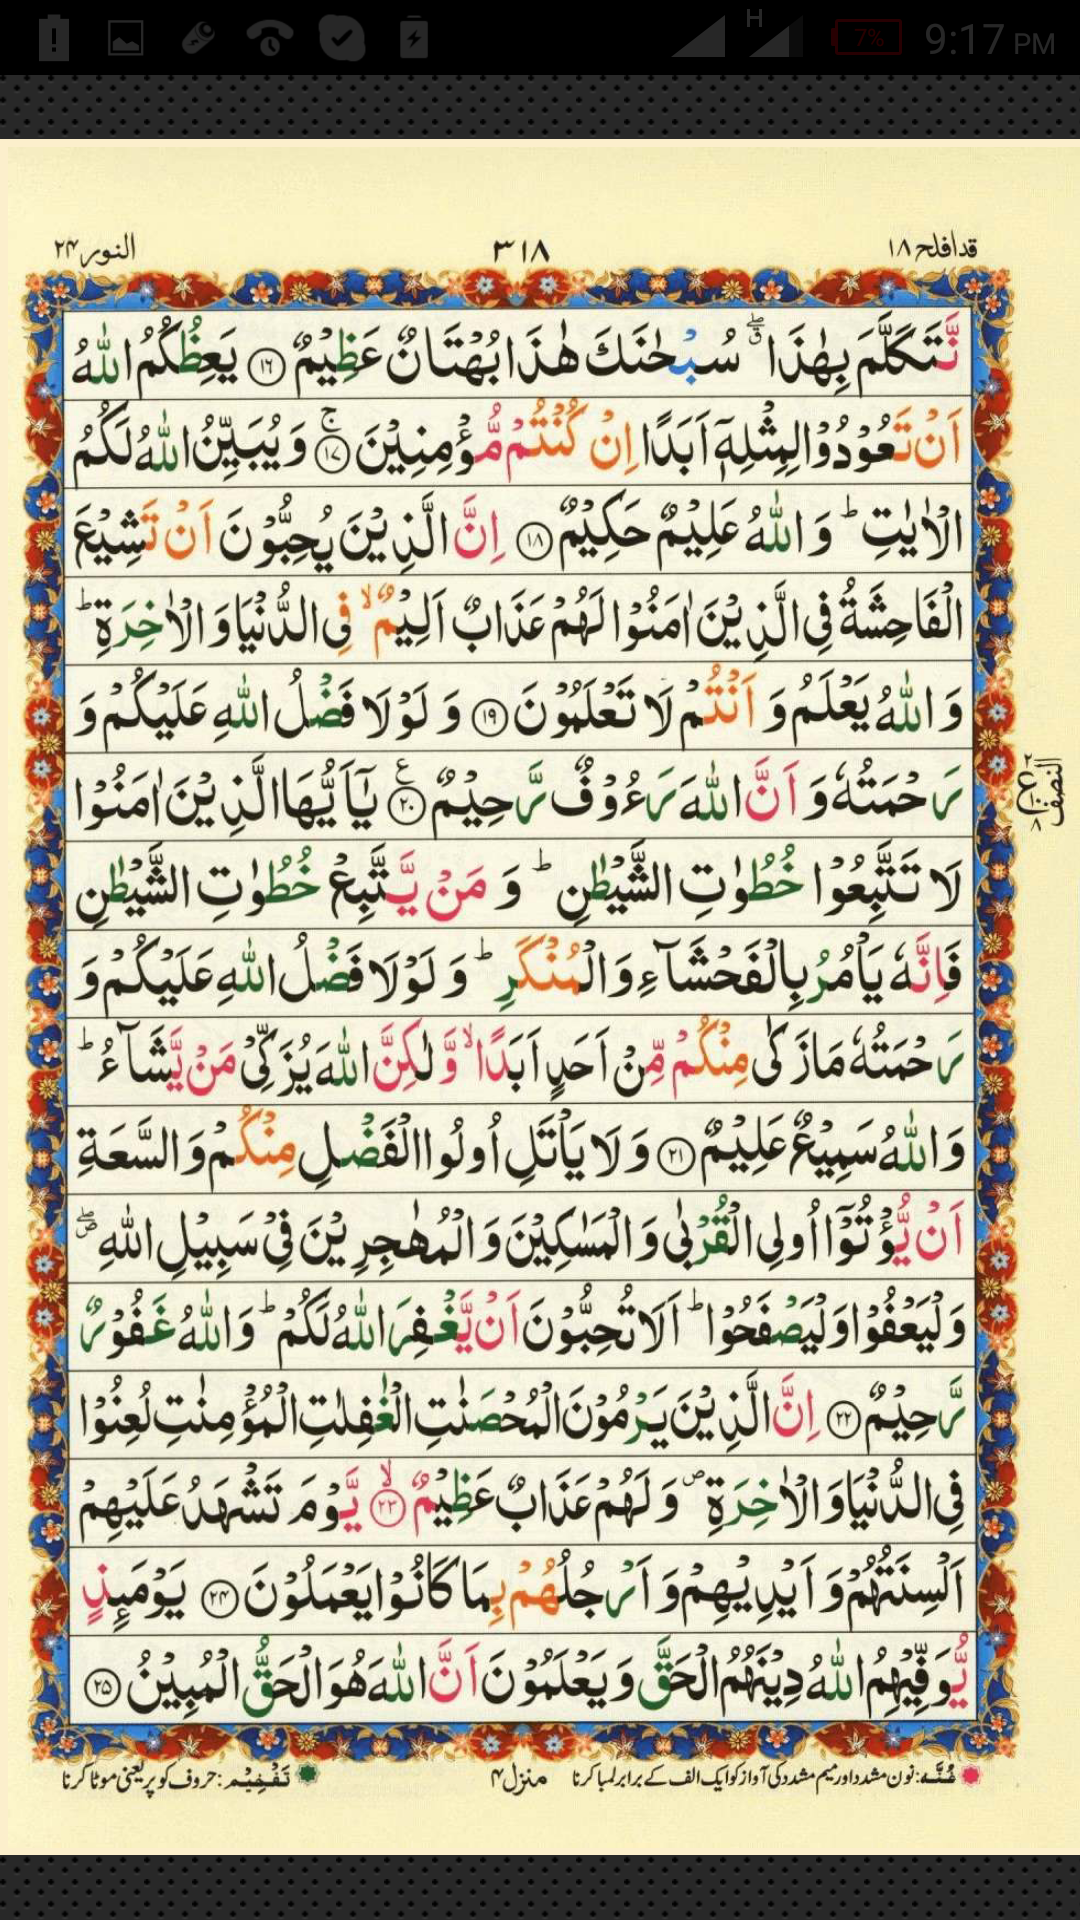 H 7% 9:17 PM
قدافلح ١٨ ٣١٨ النور ٢٤
نَّتَكَلَّمَ بِهٰذَا ۖۗ سُبْحٰنَكَ هٰذَا بُهْتَانٌ عَظِيْمٌ ﴿١٦﴾ يَعِظُكُمُ اللّٰهُ
اَنْ تَعُوْدُوْا لِمِثْلِهٖۤ اَبَدًا اِنْ كُنْتُمْ مُّؤْمِنِيْنَ ۚ﴿١٧﴾ وَ يُبَيِّنُ اللّٰهُ لَكُمُ
الْاٰيٰتِ ؕ وَ اللّٰهُ عَلِيْمٌ حَكِيْمٌ ﴿١٨﴾ اِنَّ الَّذِيْنَ يُحِبُّوْنَ اَنْ تَشِيْعَ
الْفَاحِشَةُ فِى الَّذِيْنَ اٰمَنُوْا لَهُمْ عَذَابٌ اَلِيْمٌ ۙ فِى الدُّنْيَا وَ الْاٰخِرَةِ ؕ
وَ اللّٰهُ يَعْلَمُ وَ اَنْتُمْ لَا تَعْلَمُوْنَ ﴿١٩﴾ وَ لَوْلَا فَضْلُ اللّٰهِ عَلَيْكُمْ وَ
رَحْمَتُهٗ وَ اَنَّ اللّٰهَ رَءُوْفٌ رَّحِيْمٌ ﴿٢٠﴾ع يٰۤاَيُّهَا الَّذِيْنَ اٰمَنُوْا
لَا تَتَّبِعُوْا خُطُوٰتِ الشَّيْطٰنِ ؕ وَ مَنْ يَّتَّبِعْ خُطُوٰتِ الشَّيْطٰنِ
فَاِنَّهٗ يَاْمُرُ بِالْفَحْشَآءِ وَ الْمُنْكَرِ ؕ وَ لَوْلَا فَضْلُ اللّٰهِ عَلَيْكُمْ وَ
رَحْمَتُهٗ مَا زَكٰى مِنْكُمْ مِّنْ اَحَدٍ اَبَدًا ۙ وَّ لٰكِنَّ اللّٰهَ يُزَكِّىْ مَنْ يَّشَآءُ ؕ
وَ اللّٰهُ سَمِيْعٌ عَلِيْمٌ ﴿٢١﴾ وَ لَا يَاْتَلِ اُولُوا الْفَضْلِ مِنْكُمْ وَ السَّعَةِ
اَنْ يُّؤْتُوْۤا اُولِى الْقُرْبٰى وَ الْمَسٰكِيْنَ وَ الْمُهٰجِرِيْنَ فِىْ سَبِيْلِ اللّٰهِ ۖ
وَ لْيَعْفُوْا وَ لْيَصْفَحُوْا ؕ اَلَا تُحِبُّوْنَ اَنْ يَّغْفِرَ اللّٰهُ لَكُمْ ؕ وَ اللّٰهُ غَفُوْرٌ
رَّحِيْمٌ ﴿٢٢﴾ اِنَّ الَّذِيْنَ يَرْمُوْنَ الْمُحْصَنٰتِ الْغٰفِلٰتِ الْمُؤْمِنٰتِ لُعِنُوْا
فِى الدُّنْيَا وَ الْاٰخِرَةِ ۪ وَ لَهُمْ عَذَابٌ عَظِيْمٌ ۙ﴿٢٣﴾ يَّوْمَ تَشْهَدُ عَلَيْهِمْ
اَلْسِنَتُهُمْ وَ اَيْدِيْهِمْ وَ اَرْجُلُهُمْ بِمَا كَانُوْا يَعْمَلُوْنَ ﴿٢٤﴾ يَوْمَئِذٍ
يُّوَفِّيْهِمُ اللّٰهُ دِيْنَهُمُ الْحَقَّ وَ يَعْلَمُوْنَ اَنَّ اللّٰهَ هُوَ الْحَقُّ الْمُبِيْنُ ﴿٢٥﴾
النصف
٢ ع ١٠ ٨
غُنَّه: نون مشدد اور میم مشدد کی آواز کو ایک الف کے برابر لمبا کرنا منزل ۴ تَفْخِيْم: حروف کو پُر یعنی موٹا کرنا